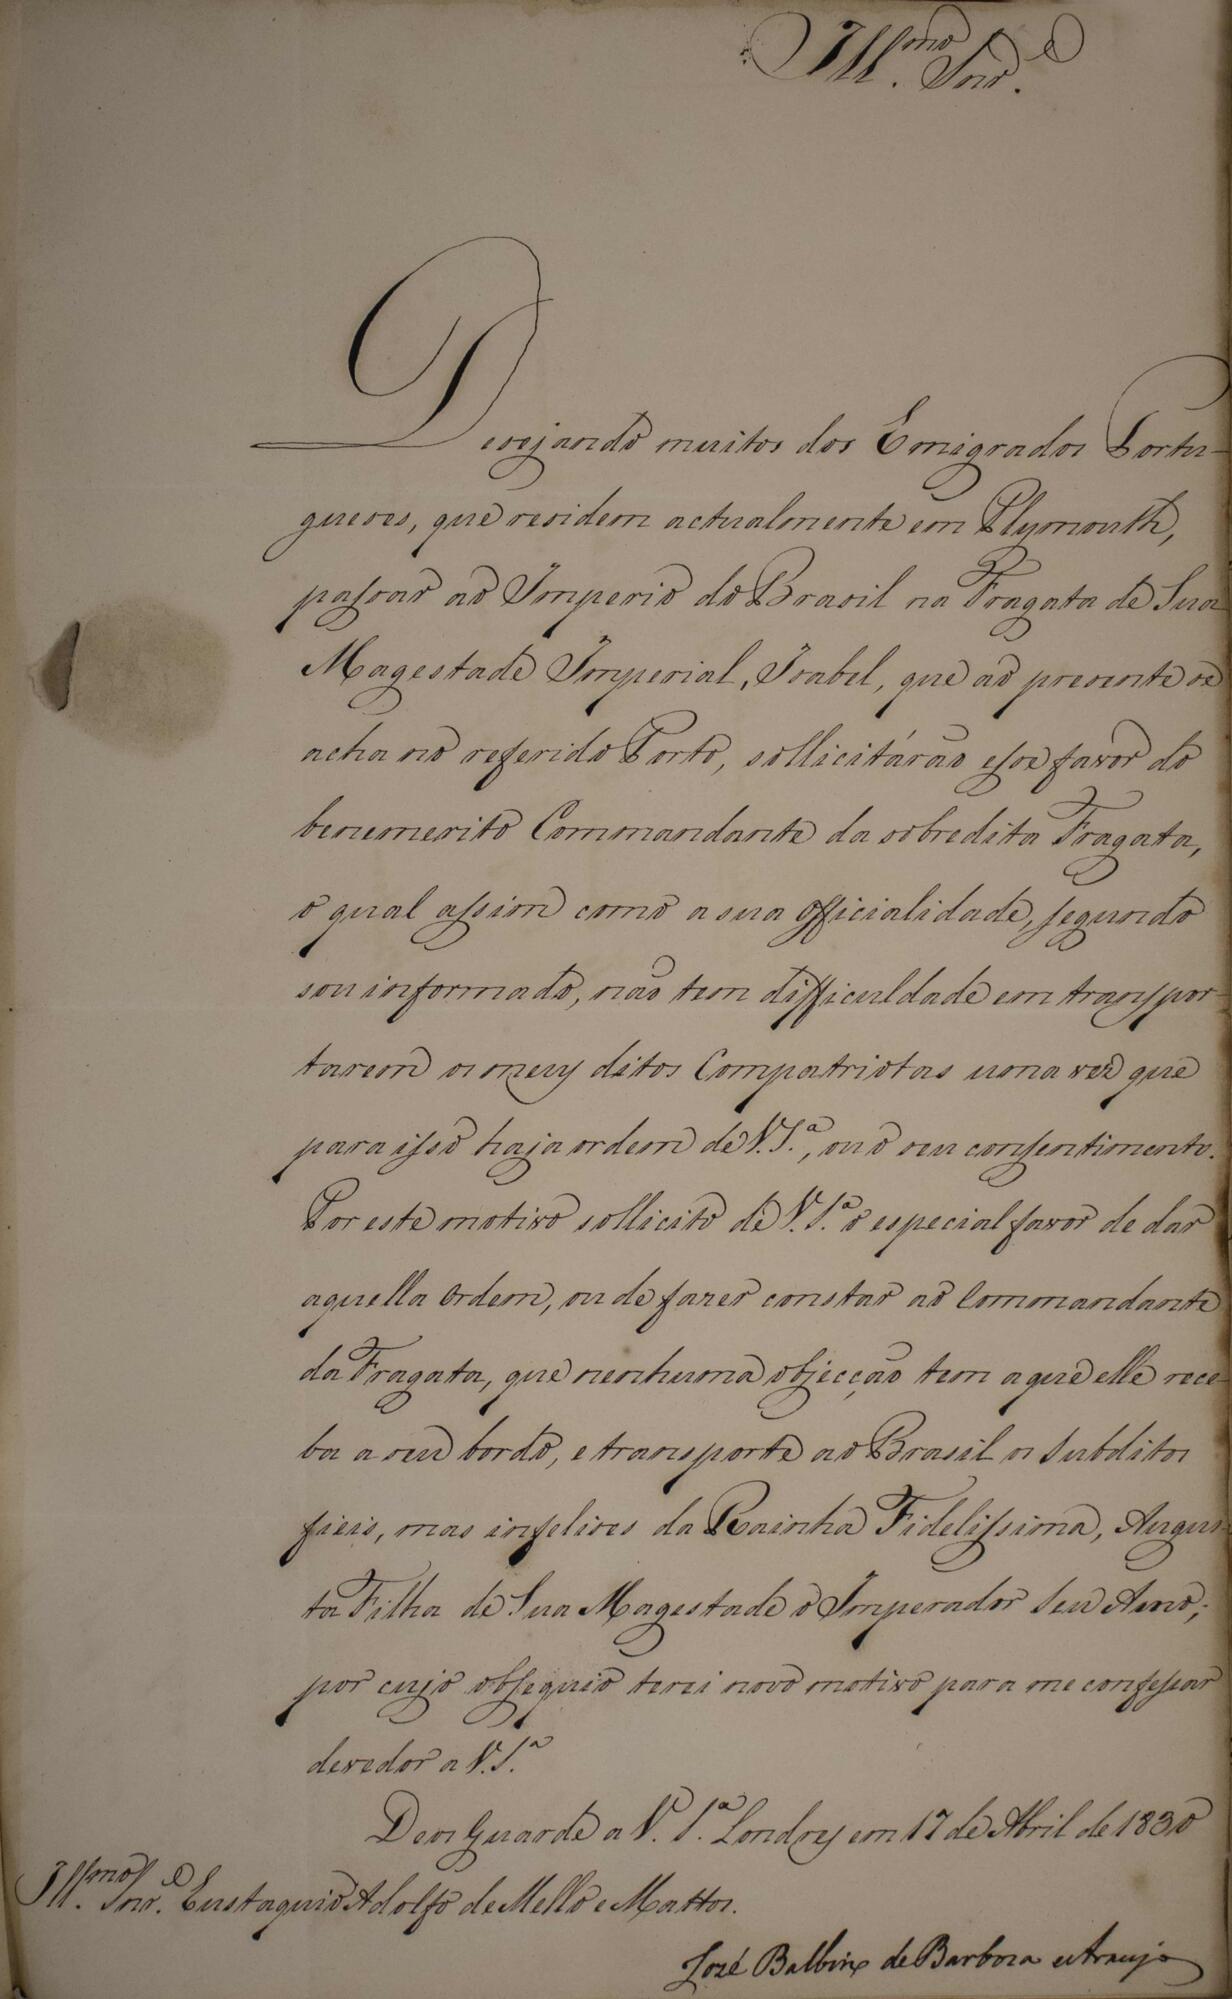 Ill.mo Snr.
Desejando muitos dos Emigrados Portu-
guezes, que residem actualmente em Plymouth,
passar ao Imperio do Brasil na Fragata de Sua
Magestade Imperial, Isabel, que ao presente se
acha no referido Porto, sollicitárão esse favor do
benemerito Commandante da sobredita Fragata,
o qual assim como a sua officialidade, segundo
sou informado, não tem difficuldade em transpor-
tarem os meus ditos Compatriotas uma vez que
para isso haja ordem de V. S.ª, ou o seu consentimento.
Por este motivo sollicito de V. S.ª o especial favor de dar
aquella ordem, ou de fazer constar ao Commandante
da Fragata, que nenhuma objecção tem a que elle rece-
ba a seu bordo, e transporte ao Brasil os Subditos
fieis, mas infelices da Rainha Fidelissima, Augus-
ta Filha de Sua Magestade o Imperador Seu Amo;
por cujo obsequio terei novo motivo para me confessar
devedor a V. S.ª
Deos Guarde a V. S.ª Londres em 17 de Abril de 1830
Ill.mo Snr. Eustaquio Adolfo de Mello e Mattos.
José Balbino de Barboza e Araujo